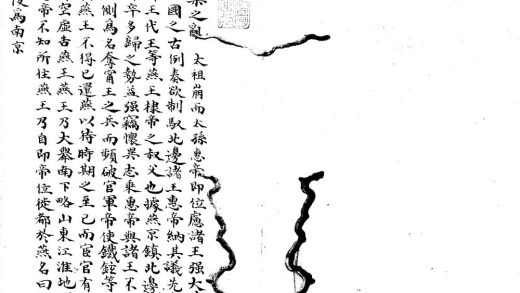 樂之亂 太祖崩而太孫惠帝即位慮諸王强大
國之古例奏欲制馭北邊諸王惠帝納其議先
王代王等燕王棣帝之叔父也據燕京鎮北邊
卒多歸之勢益强竊懷異志乘惠帝與諸王不
側爲名奪甯王之兵而頻破官軍帝使鐵鉉等
燕王不得已還燕以待時期之至已而宦官有
空虛告燕王燕王乃大擧南下略山東江淮地
帝不知所往燕王乃自即帝位徙都於燕名曰
陵爲南京